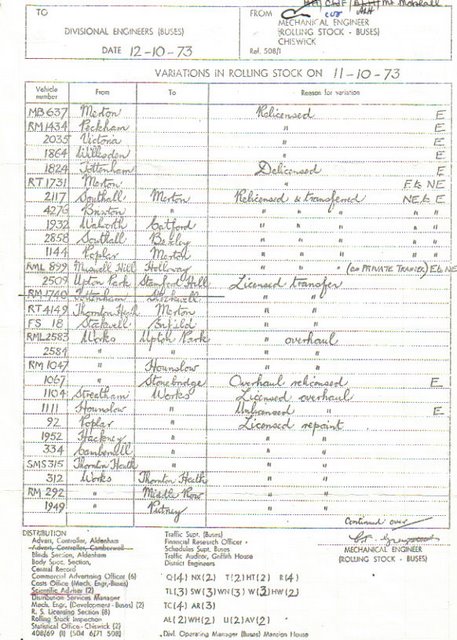 TO
DIVISIONAL ENGINEERS (BUSES)
DATE 12-10-73
FROM
MECHANICAL ENGINEER
(ROLLING STOCK - BUSES)
CHISWICK
Ref. 508/1
VARIATIONS IN ROLLING STOCK ON 11-10-73
Vehicle number From To Reason for variation
MB 637 Merton Relicensed E
RM 1434 Peckham " E
2035 Victoria " E
1864 Willesden " E
1824 Tottenham Delicensed E
RT 1731 Merton " E & NE
2117 Southall Merton Relicensed & transferred NE & E
4276 Brixton " " " " "
1932 Walworth Catford " " " "
2858 Southall Bexley " " " "
1144 Poplar Merton " " " "
RML 899 Muswell Hill Holloway " " " (as PRIVATE TRAINER) E & NE
2509 Upton Park Stamford Hill Licensed transfer
RM 1740 Sydenham Stockwell " "
RT 4149 Thornton Heath Merton " "
FS 18 Stockwell Enfield " "
RML 2583 Works Upton Park " overhaul
2584 " " " "
RM 1047 " Hounslow " "
1067 " Stonebridge Overhaul relicensed E
1104 Streatham Works Licensed overhaul
1111 Hounslow " Unlicensed " E
92 Poplar " Licensed repaint
1952 Hackney " " "
334 Camberwell " " "
SMS 315 Thornton Heath " " "
312 Works Thornton Heath " "
RM 292 " Middle Row " "
1949 " Putney " "
Continued over
MECHANICAL ENGINEER
(ROLLING STOCK - BUSES)
DISTRIBUTION
Advert. Controller, Aldenham
Advert. Controller, Camberwell
Blinds Section, Aldenham
Body Supt. Section,
Central Record
Commercial Advertising Officer (6)
Costs Office (Mech. Engr.-Buses)
Scientific Adviser (2)
Distribution Services Manager
Mech. Engr. (Development - Buses) (2)
R. S. Licensing Section (8)
Rolling Stock Inspection
Statistical Office - Chiswick (2)
408/69 (1) (504 6/71 508)
Traffic Supt. (Buses)
Financial Research Officer
Schedules Supt. Buses
Traffic Auditor, Griffith House
District Engineers
Q(4) NX(2) T(2) HT(2) R(4)
TL(3) SW(3) WN(3) W(3) HW(2)
TC(4) AR(3)
AL(2) WH(2) U(2) AV(2)
Divl. Operating Manager (Buses) Mansion House